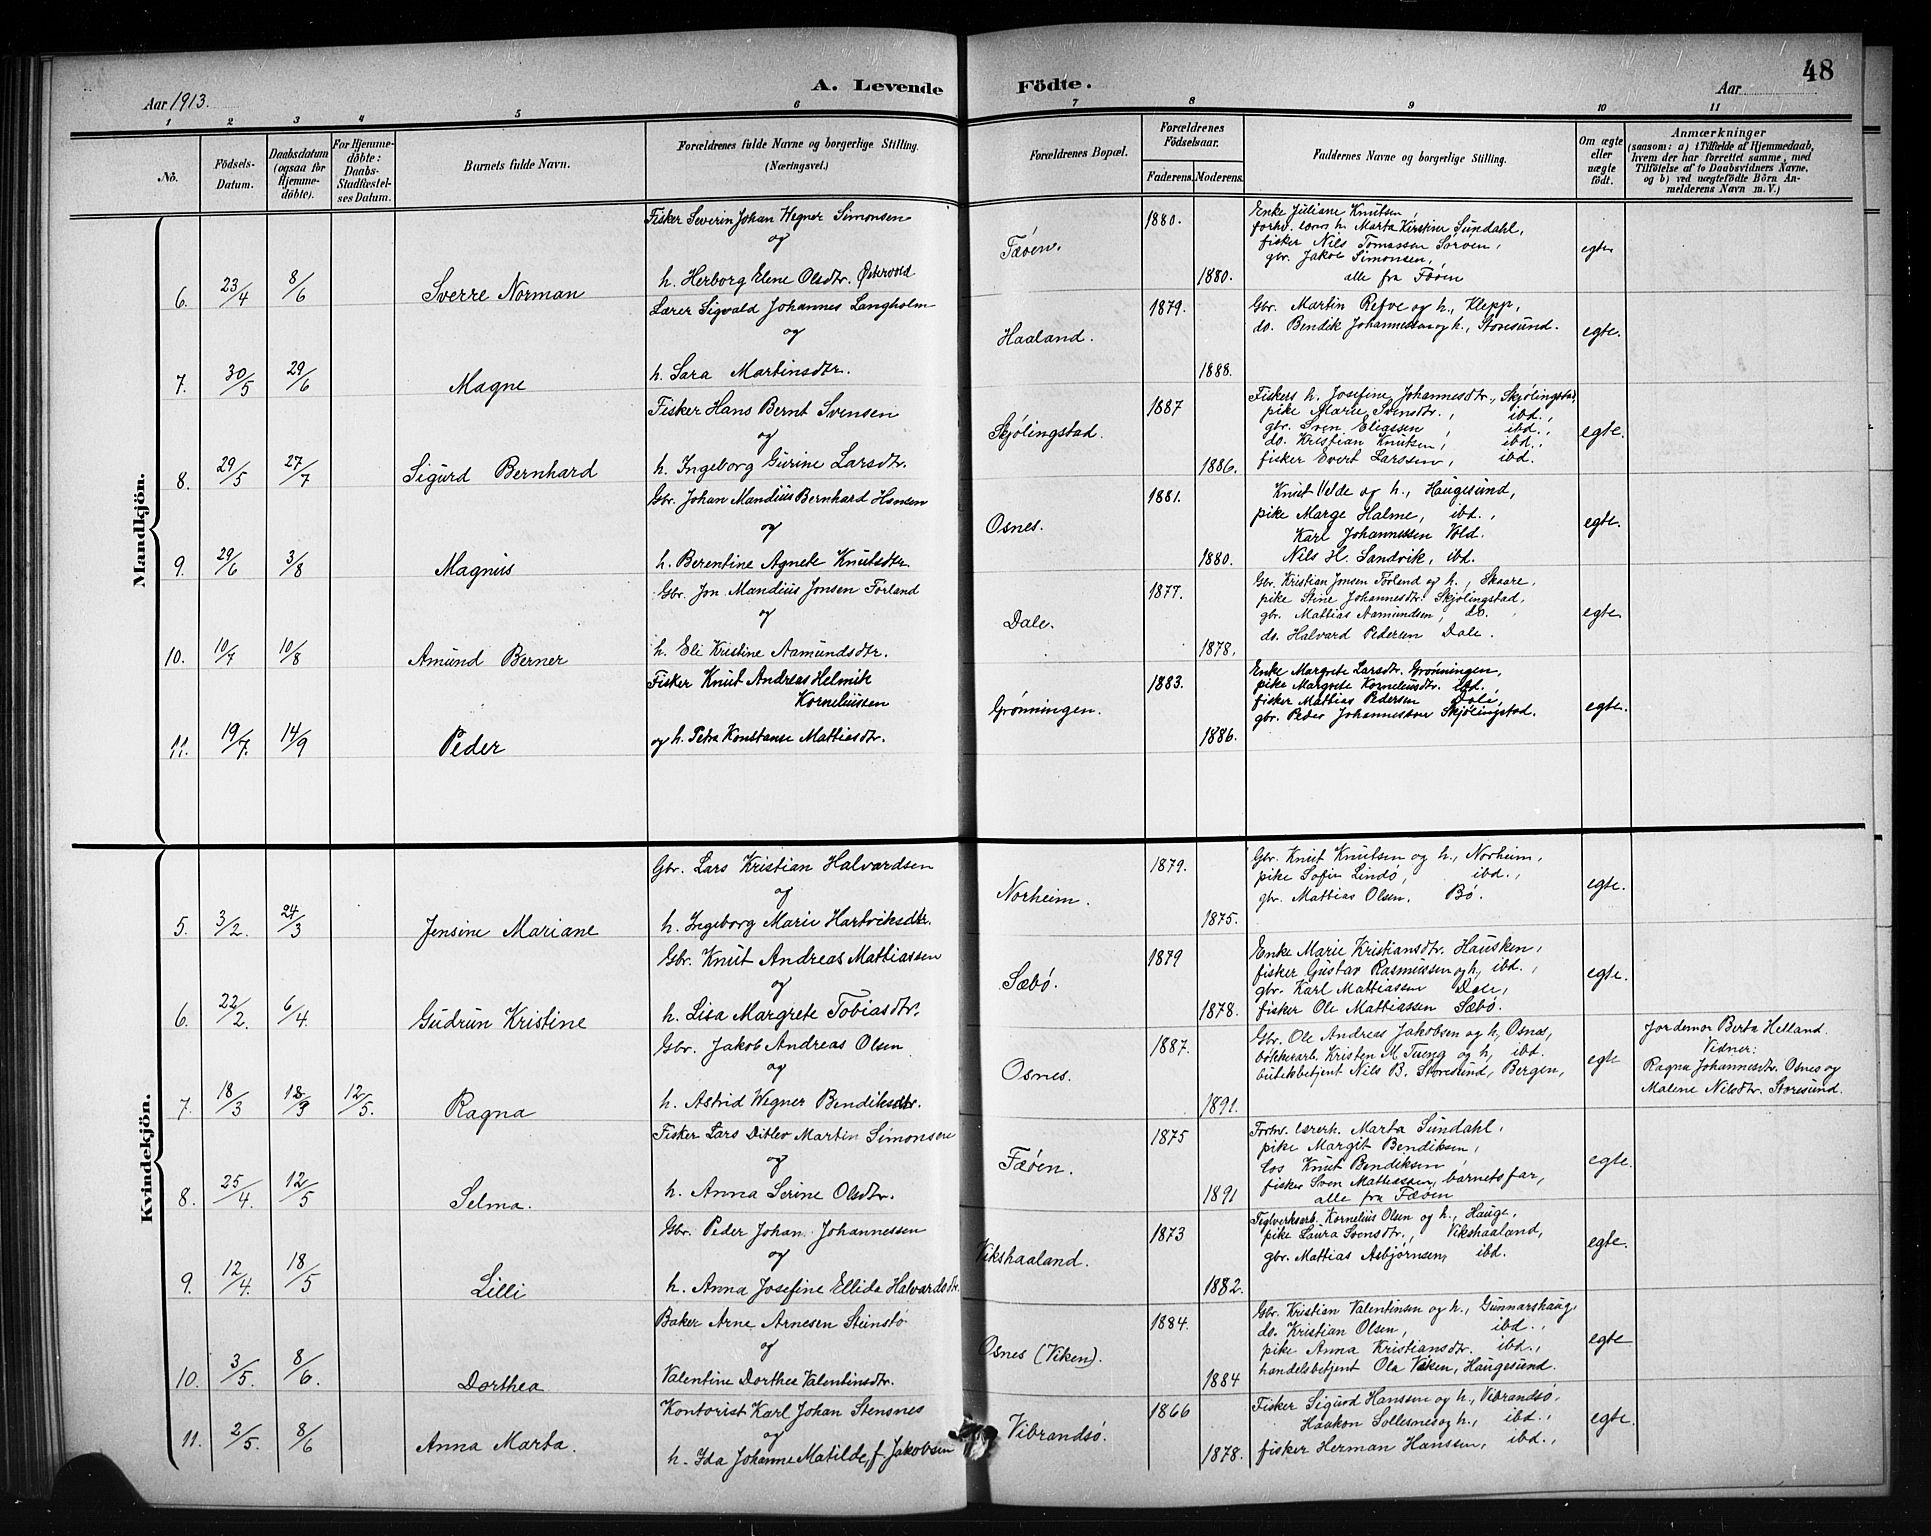 48
A. Levende Födte.
Aar 1913.
Aar
1 2 3 4 5 6 7 8 9 10 11
No.
Födsels-Datum.
Daabsdatum (ogsaa for Hjemmedöbte).
For Hjemmedöbte: Daabs-Stadfæstelses Datum.
Barnets fulde Navn.
Forældrenes fulde Navne og borgerlige Stilling.
(Næringsvei.)
Forældrenes Bopæl.
Forældrenes Födselsaar.
Faderens. Moderens.
Faddernes Navne og borgerlige Stilling.
Om ægte eller uægte födt.
Anmærkninger
(saasom: a) i Tilfælde af Hjemmedaab, hvem der har forrettet samme, med Tilföielse af to Daabsvidners Navne, og b) ved uægtefödte Börn Anmelderens Navn m. V.)
Mandkjön.
6. 23/4 8/6 Sverre Norman
Fisker Severin Johan Wegner Simonsen
og
h. Herborg Elene Olsdtr. Østervold
Fæøen. 1880. 1880.
Enke Juliane Knutsen,
forhv. lærers h. Marta Kirstine Sundahl,
fisker Nils Tomassen Sørøen,
gbr. Jakob Simonsen,
alle fra Fæøen
egte
7. 30/5 29/6 Magne
Lærer Sigvald Johannes Langholm
og
h. Sara Martinsdtr.
Haaland. 1879. 1888.
Gbr. Martin Refve og h., Klepp,
do. Bendik Johannessen og h., Storesund.
egte.
8. 29/5 27/7 Sigurd Bernhard
Fisker Hans Bernt Svensen
og
h. Ingeborg Gurine Larsdtr.
Skjølingstad. 1887 1886.
Fiskers h. Josefine Johannesdtr., Skjølingstad,
pike Marie Svensdtr., ibd.,
gbr. Sven Eliassen, ibd.,
do. Kristian Knutsen, ibd.
fisker Evert Larssen, ibd.
egte.
9. 29/6 3/8 Magnus
Gbr. Johan Mandius Bernhard Hansen
og
h. Berentine Agnete Knutsdtr.
Osnes. 1881. 1880.
Knut Velde og h., Haugesund,
pike Marge Halme, ibd.,
Karl Johannessen Vold.
Nils H. Sandvik, ibd.
egte.
10. 10/7 10/8 Amund Berner
Gbr. Jon Mandius Jonsen Førland
og
h. Eli Kristine Aamundsdtr.
Dale. 1877. 1878.
Gbr. Kristian Jonsen Førland og h., Skaare,
pike Stine Johannesdtr. Skjølingstad,
gbr. Mattias Aamundsen, do.
do. Halvard Pedersen Dale.
egte
11. 19/7. 14/9 Peder
Fisker Knut Andreas Helmik
Korneliussen
og h. Petra Konstanse Mattiasdtr.
Grønningen. 1883. 1886.
Enke Margrete Larsdtr. Grønningen,
pike Margrete Korneliusdtr. ibd.,
fisker Mattias Pedersen Dale,
gbr. Peder Johannessen Skjølingstad.
egte.
Kvindekjön.
5. 3/2. 24/3 Jensine Mariane
Gbr. Lars Kristian Halvardsen
og
h. Ingeborg Marie Hartviksdtr.
Norheim. 1879. 1875.
Gbr. Knut Knutsen og h., Norheim,
pike Sofie Lindø, ibd.,
gbr. Mattias Olsen, Bø.
egte.
6. 22/2. 6/4. Gudrun Kristine
Gbr. Knut Andreas Mattiassen
og
h. Lisa Margrete Tobiasdtr.
Sæbø. 1879 1878.
Enke Marie Kristiansdtr. Hausken,
fisker Gustav Rasmussen og h, ibd.,
gbr. Karl Mattiassen Dale,
fisker Ole Mattiassen Sæbø.
egte.
7. 18/3 18/3 12/5. Ragna
Gbr. Jakob Andreas Olsen
og
h. Astrid Wegner Bendiksdtr.
Osnes. 1887. 1891.
Gbr. Ole Andreas Jakobsen og h, Osnes,
Kristen M. Tueng og h, ibd.
butikbetjent Nils B. Storesund, Bergen,
egte
Jordemor Berta Helland.
Vidner:
Ragna Johannesdtr. Osnes og
Malene Nilsdtr. Storesund.
8. 25/4. 12/5 Selma.
Fisker Lars Ditlev Martin Simonsen
og
h. Anna Serine Olsdtr.
Fæøen. 1875 1891
Forhv. lærerh. Marta Sundahl,
pike Margit Bendiksen,
los Knut Bendiksen
fisker Sven Mattiassen, barnets far,
alle fra Fæøen
egte.
9. 12/4. 18/5 Lilli
Gbr. Peder Johan Johannessen
og
h. Anna Josefine Ellida Halvardsdtr.
Vikshaaland. 1873 1882.
Teglverksarb. Kornelius Olsen og h., Hauge,
pike Laura Svensdtr., Vikshaaland,
gbr. Mattias Asbjørnsen, ibd.
egte.
10. 3/5. 8/6. Dorthea
Baker Arne Arnesen Stenstø
og
Valentine Dorthea Valentinsdtr.
Osnes (Viken). 1884. 1884
Gbr. Kristian Valentinsen og h., Gunnarshaug,
do. Kristian Olsen, ibd.,
pike Anna Kristiansdtr. ibd.,
handelsbetjent Ola Viken, Haugesund.
egte
11. 2/5. 8/6 Anna Marta.
Kontorist Karl Johan Stensnes
og
h. Ida Johanne Matilde, f. Jakobsen
Vibrandsø. 1866 1878.
Fisker Sigurd Hanssen og h., Vibrandsø,
Haakon Sollesnes og h., ibd.,
fisker Herman Hanssen, ibd.,
egte.